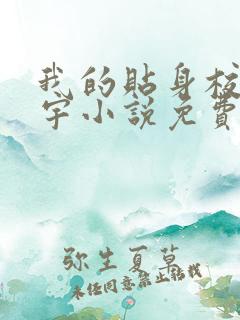 我的貼身校
宇小說免費
弥生夏草
未经同意禁止转载